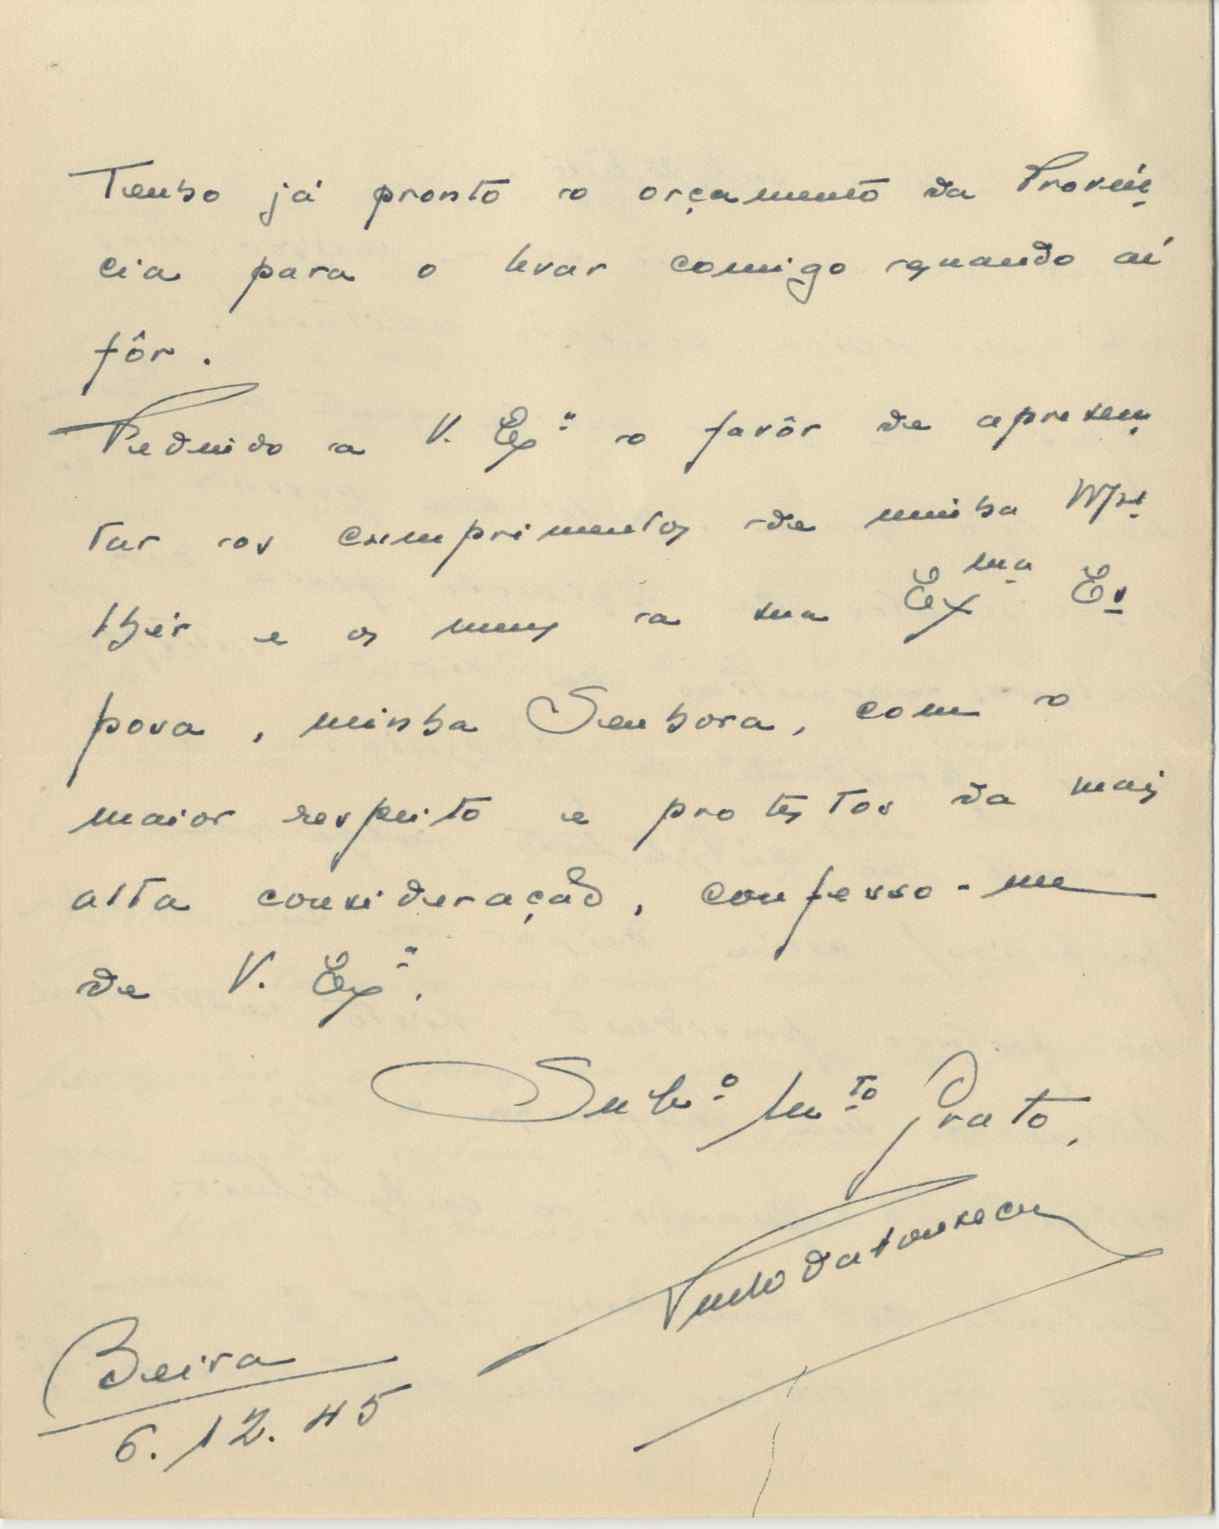 Tenho já pronto o orçamento da Provín
cia para o levar comigo quando aí
fôr.
Pedindo a V. Exª o favôr de apresen
tar os cumprimentos de minha Mu
lher e os meus a sua Exma Es
posa, minha Senhora, com o
maior respeito e protestos da mais
alta consideração, confesso-me
de V. Exª.
Subº Mto Grato,
Pinto da Fonseca
Beira
6.12.45